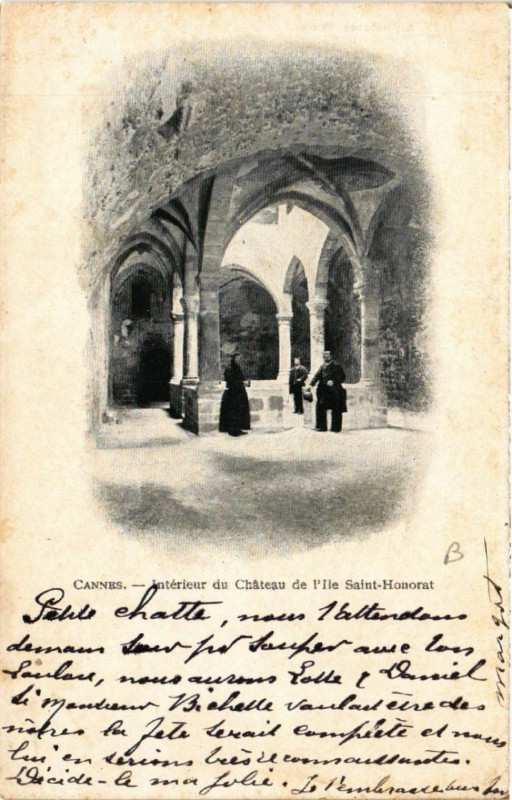 CANNES. — Intérieur du Château de l'Ile Saint-Honorat
B
Petite chatte, nous t'attendons
demain soir pr souper avec ton
Loulou, nous aurons Lotte & Daniel
Si monsieur Bichette voulait être des
nôres la fête serait complète et nous
lui en serions très reconnaissantes.
Décide-le ma jolie. Je t'embrasse
Margot